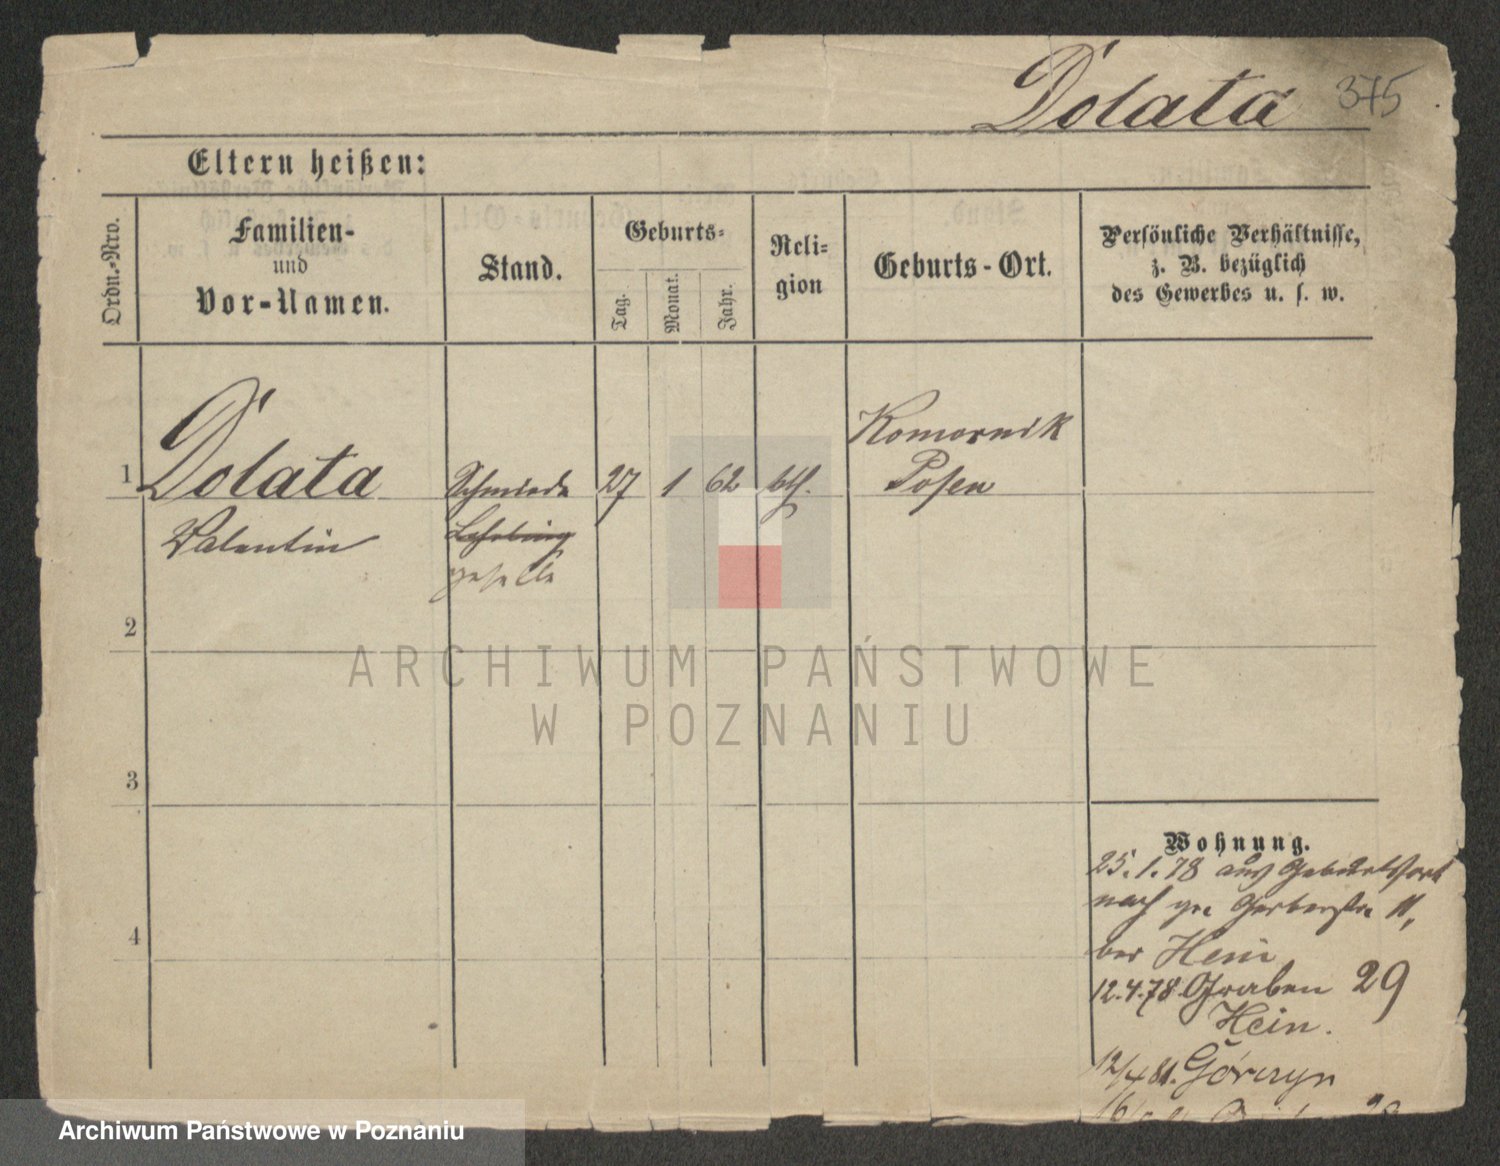 Dolata 375
Eltern heißen:
Ordn.-Nro.
Familien-
und
Vor-Namen.
Stand.
Geburts-
Tag.
Monat.
Jahr.
Reli-
gion
Geburts-Ort.
Persönliche Verhältnisse,
z. B. bezüglich
des Gewerbes u. s. w.
1 Dolata
Valentin
Schmiede
Lehrling
geselle
27 1 62 kth.
Komornik
Posen
2
3
4
Wohnung.
25.1.78 aus Geburtsort
nach gr. Gerberstr. 11,
bei Hein
12.4.78. Graben 29
Hein.
12/4 81. Górczyn
ARCHIWUM PAŃSTWOWE
W POZNANIU
Archiwum Państwowe w Poznaniu